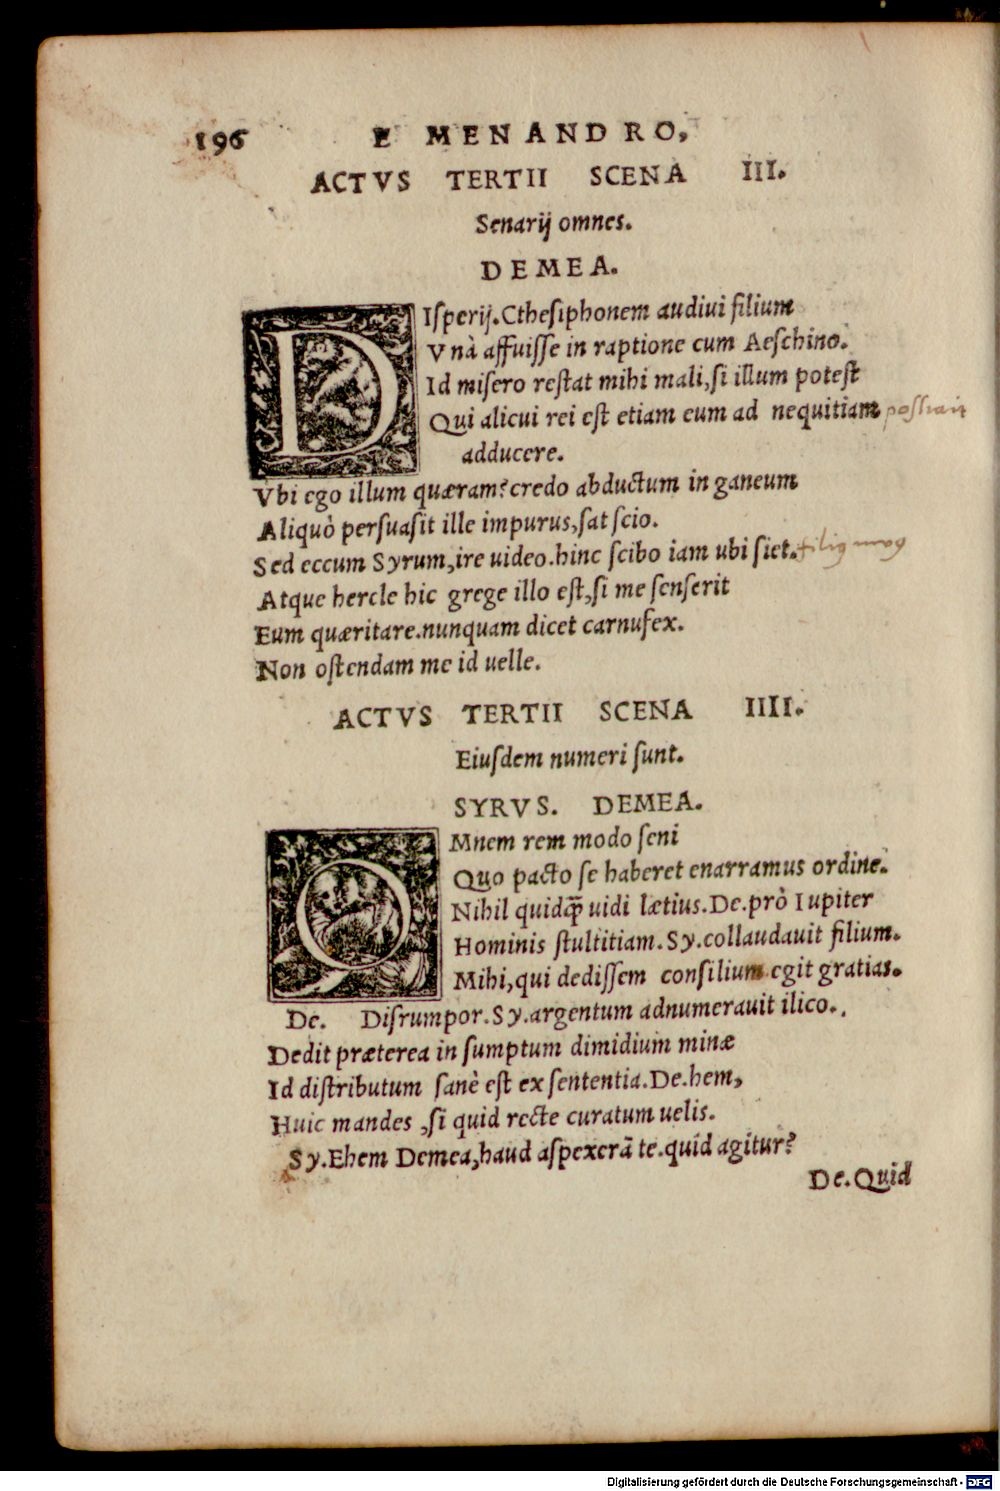 196 E MENANDRO,
ACTVS TERTII SCENA III.
Senarij omnes.
DEMEA.
DIſperij. Ctheſiphonem audiui filium
Vnà affuiſſe in raptione cum Aeſchino.
Id miſero reſtat mihi mali, ſi illum poteſt
Qui alicui rei eſt etiam eum ad nequitiam
adducere.
Vbi ego illum quæram? credo abductum in ganeum
Aliquò perſuaſit ille impurus, ſat ſcio.
Sed eccum Syrum, ire uideo. hinc ſcibo iam ubi ſiet. filiꝰ meꝰ
Atque hercle hic grege illo eſt, ſi me ſenſerit
Eum quæritare. nunquam dicet carnufex.
Non oſtendam me id uelle.
ACTVS TERTII SCENA IIII.
Eiuſdem numeri ſunt.
SYRVS. DEMEA.
OMnem rem modo ſeni
Quo pacto ſe haberet enarramus ordine.
Nihil quidꝗ̃ uidi lætius. De. prò Iupiter
Hominis ſtultitiam. Sy. collaudauit filium.
Mihi, qui dediſſem conſilium egit gratias.
De. Diſrumpor. Sy. argentum adnumerauit ilico.
Dedit præterea in ſumptum dimidium minæ
Id diſtributum ſanè eſt ex ſententia. De. hem,
Huic mandes, ſi quid recte curatum uelis.
Sy. Ehem Demea, haud aſpexerã te. quid agitur?
De. Quid
Digitalisierung gefördert durch die Deutsche Forschungsgemeinschaft - DFG